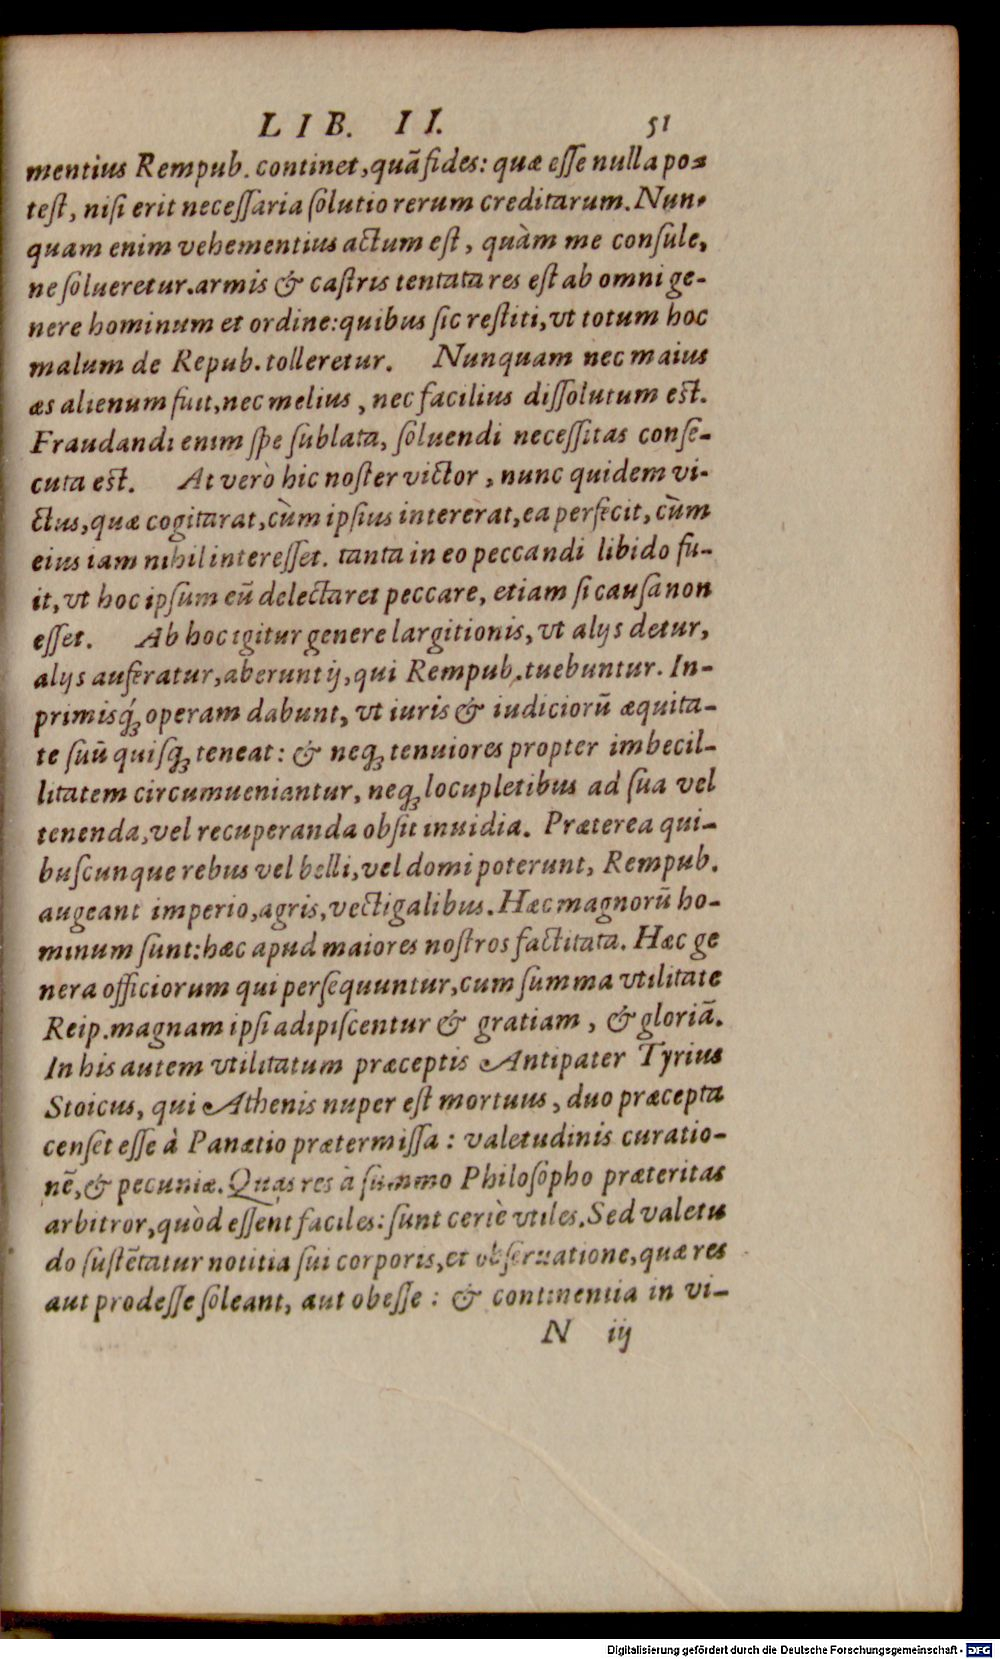 LIB. II. 51
mentius Rempub. continet, quã fides: quæ eſſe nulla po-
teſt, niſi erit neceſſaria ſolutio rerum creditarum. Nun-
quam enim vehementius actum eſt, quàm me conſule,
ne ſolueretur. armis & caſtris tentata res eſt ab omni ge-
nere hominum et ordine: quibus ſic reſtiti, vt totum hoc
malum de Repub. tolleretur. Nunquam nec maius
æs alienum fuit, nec melius, nec facilius diſſolutum eſt.
Fraudandi enim ſpe ſublata, ſoluendi neceſſitas conſe-
cuta eſt. At verò hic noſter victor, nunc quidem vi-
ctus, quæ cogitarat, cùm ipſius intererat, ea perfecit, cùm
eius iam nihil intereſſet. tanta in eo peccandi libido fu-
it, vt hoc ipſum eũ delectaret peccare, etiam ſi cauſa non
eſſet. Ab hoc igitur genere largitionis, vt alijs detur,
alijs auferatur, aberunt ij, qui Rempub. tuebuntur. In-
primisq́; operam dabunt, vt iuris & iudiciorũ æquita-
te ſuũ quiſq; teneat: & neq; tenuiores propter imbecil-
litatem circumueniantur, neq; locupletibus ad ſua vel
tenenda, vel recuperanda obſit inuidia. Præterea qui-
buſcunque rebus vel belli, vel domi poterunt, Rempub.
augeant imperio, agris, vectigalibus. Hæc magnorũ ho-
minum ſunt: hæc apud maiores noſtros factitata. Hæc ge
nera officiorum qui perſequuntur, cum ſumma vtilitate
Reip. magnam ipſi adipiſcentur & gratiam, & gloriã.
In his autem vtilitatum præceptis Antipater Tyrius
Stoicus, qui Athenis nuper eſt mortuus, duo præcepta
cenſet eſſe à Panætio prætermiſſa: valetudinis curatio-
nẽ, & pecuniæ. Quas res à ſummo Philoſopho præteritas
arbitror, quòd eſſent faciles: ſunt certè vtiles. Sed valetu
do ſuſtẽtatur notitia ſui corporis, et obſeruatione, quæ res
aut prodeſſe ſoleant, aut obeſſe: & continentia in vi-
N iij
Digitalisierung gefördert durch die Deutsche Forschungsgemeinschaft - DFG